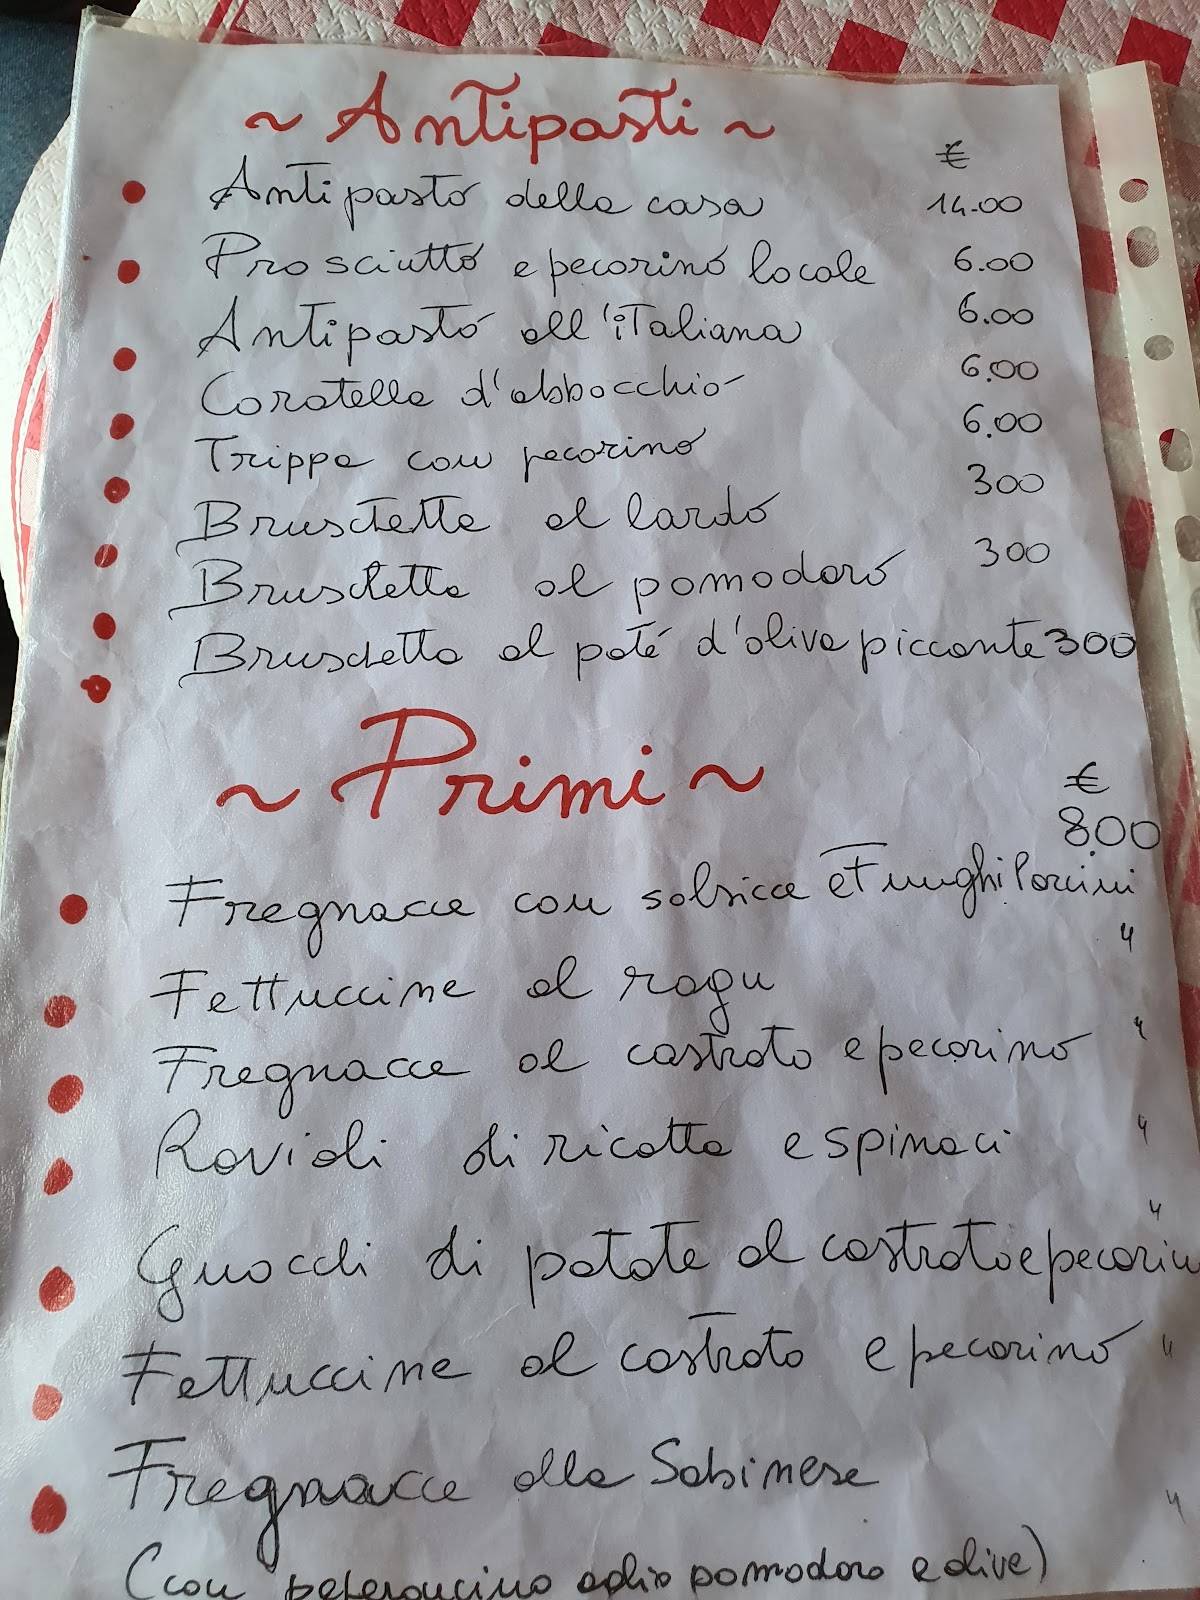 ~ Antipasti ~
€
Antipasto della casa 14.00
Prosciutto e pecorino locale 6.00
Antipasto all'italiana 6.00
Coratella d'abbacchio 6.00
Trippa con pecorino 6.00
Bruschetta al lardo 300
Bruschetta al pomodoro 300
Bruschetta al paté d'oliva piccante 300
~ Primi ~
€
8.00
Fregnacce con salsicce e Funghi Porcini
Fettuccine al ragu "
Fregnacce al castrato e pecorino "
Ravioli di ricotta e spinaci "
Gnocchi di patate al castrato e pecorin "
Fettuccine al castrato e pecorino "
Fregnacce alla Sabinese "
(con peperoncino aglio pomodoro e olive)